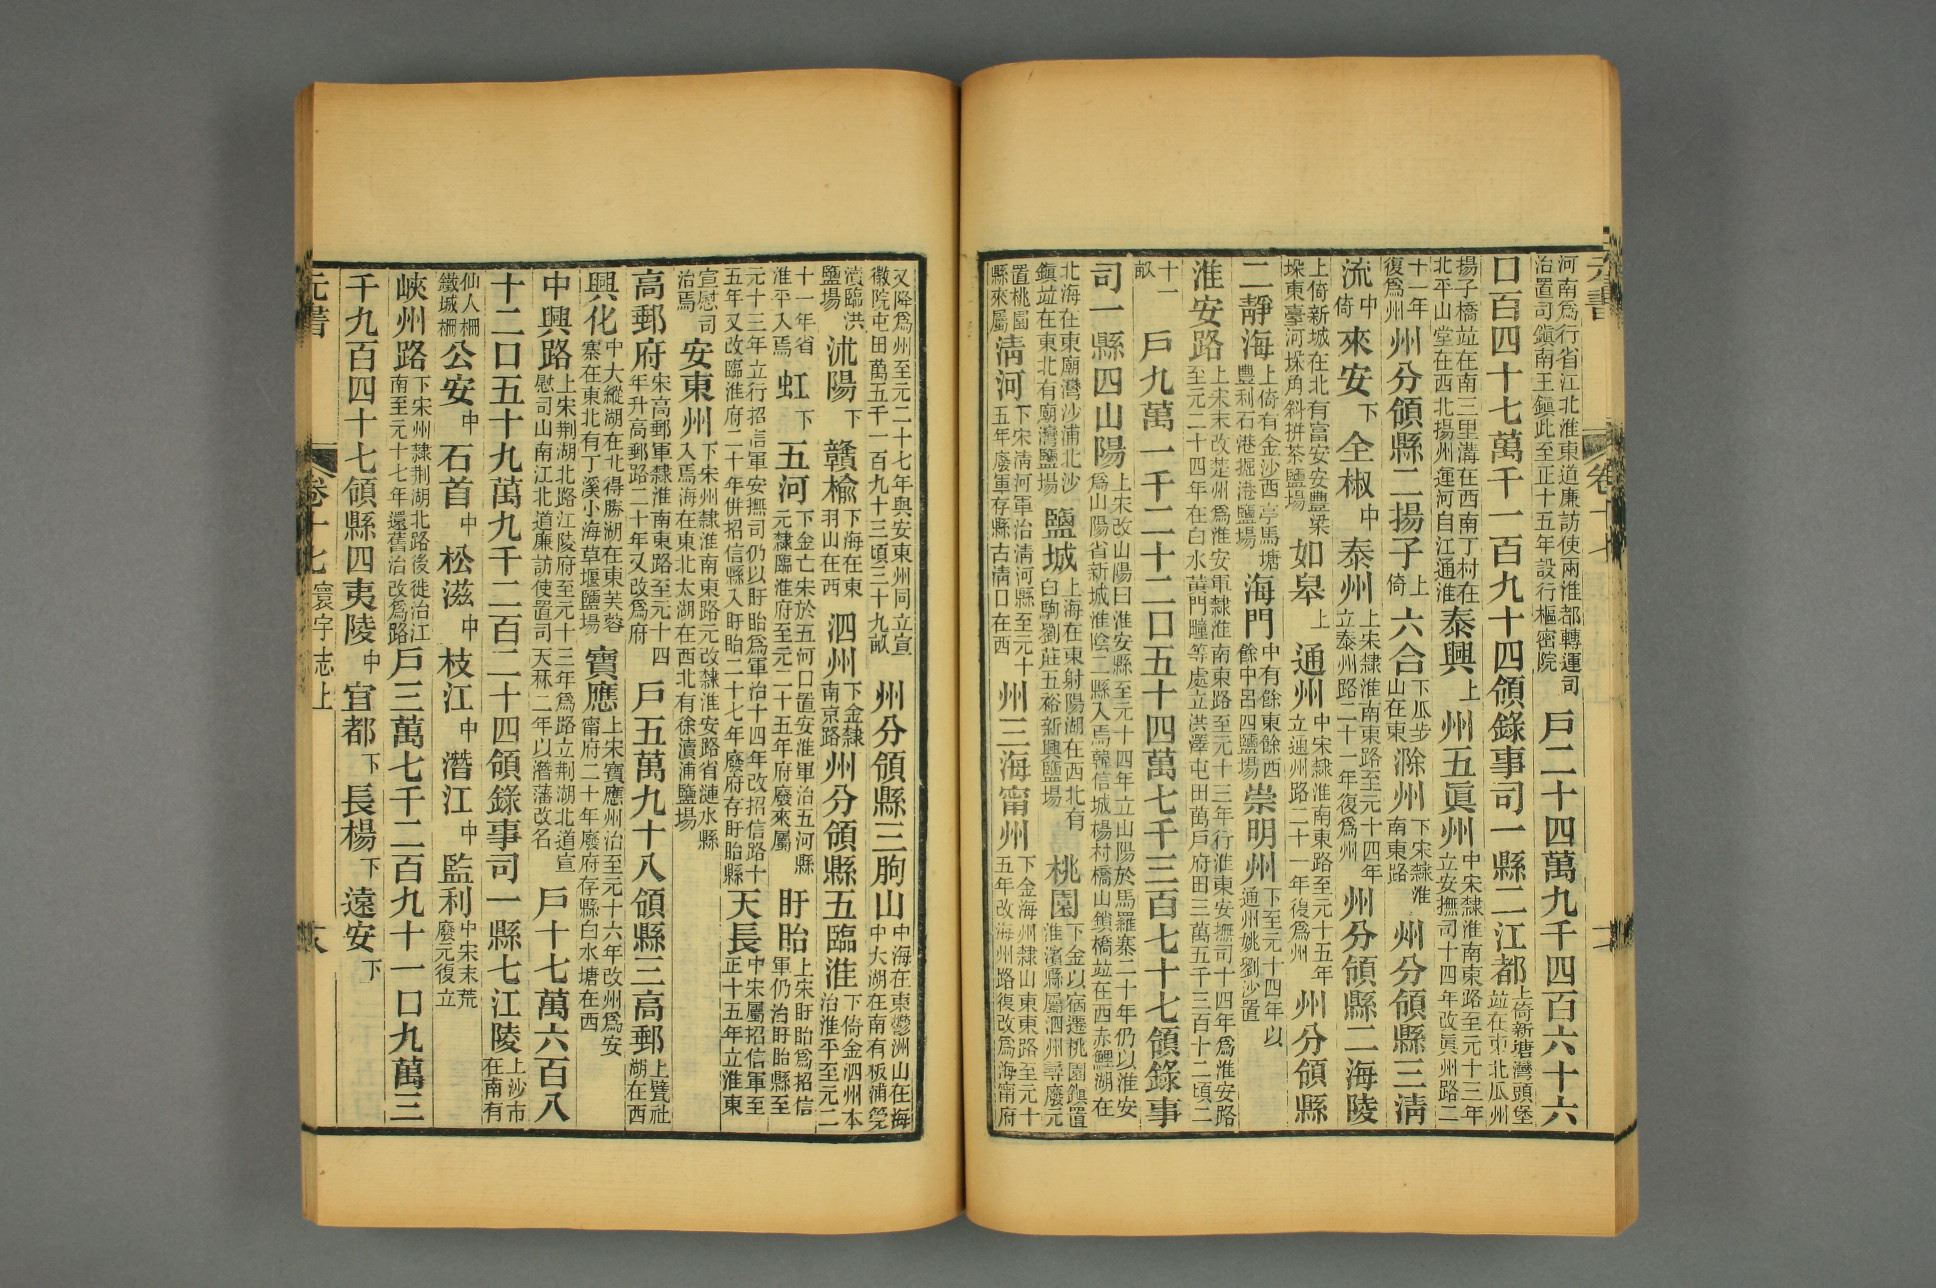 河南爲行省江北淮東道廉訪使兩淮都轉運司治置司鎭南王鎭此至正十五年設行樞密院 戶二十四萬九千四百六十六
口百四十七萬千一百九十四領錄事司一縣二江都上倚新塘灣頭堡竝在東北瓜州
揚子橋竝在南三里溝在西南丁村在北平山堂在西北揚州運河自江通淮 泰興上 州五眞州中宋隸淮南東路至元十三年立安撫司十四年改眞州路二
十一年復爲州 州分領縣二揚子上倚 六合下瓜步山在東 滁州下宋隸淮南東路 州分領縣三淸
流中倚 來安下 全椒中 泰州上宋隸淮南東路至元十四年立泰州路二十一年復爲州 州分領縣二海陵
上倚新城在北有富安安豐梁垛東臺河垛角斜拼茶鹽場 如皋上 通州中宋隸淮南東路至元十五年立通州路二十一年復爲州 州分領縣
二靜海上倚有金沙西亭馬塘豐利石港掘港鹽場 海門中有餘東餘西餘中呂四鹽場 崇明州下至元十四年以通州姚劉沙置
淮安路上宋末改楚州爲淮安軍隸淮南東路至元十三年行淮東安撫司十四年爲淮安路至元二十四年在白水萬門疃等處立洪澤屯田萬戶府田三萬五千三百十二頃二
十一畝 戶九萬一千二十二口五十四萬七千三百七十七領錄事
司一縣四山陽上宋改山陽曰淮安縣至元十四年立山陽於馬羅寨二十年仍以淮安爲山陽省新城淮陰二縣入焉韓信城楊村橋山鎖橋竝在西赤鯉湖在
北海在東廟灣沙浦北沙鎭竝在東北有廟灣鹽場 鹽城上海在東射陽湖在西北有白駒劉莊五裕新興鹽場 桃園下金以宿遷桃園鎭置淮濱縣屬泗州尋廢元
置桃園縣來屬 淸河下宋淸河軍治淸河縣至元十五年廢軍存縣古淸口在西 州三海甯州下金海州隸山東東路至元十五年改海州路復改爲海甯府
又降爲州至元二十七年與安東州同立宣徽院屯田萬五千一百九十三頃三十九畝 州分領縣三朐山中海在東鬱洲山在海中大湖在南有板浦莞
瀆臨洪鹽場 沭陽下 贛楡下海在東羽山在西 泗州下金隸南京路 州分領縣五臨淮下倚金泗州本治淮平至元二
十一年省淮平入焉 虹下 五河下金亡宋於五河口置安淮軍治五河縣元隸臨淮府至元二十五年府廢來屬 盱眙上宋盱眙爲招信軍仍治盱眙縣至
元十三年立行招信軍安撫司仍以盱眙爲軍治十四年改招信路十五年又改臨淮府二十年併招信縣入盱眙二十七年廢府存盱眙縣 天長中宋屬招信軍至正十五年立淮東
宣慰司治焉 安東州下宋州隸淮南東路元改隸淮安路省漣水縣入焉海在東北太湖在西北有徐瀆浦鹽場
高郵府宋高郵軍隸淮南東路至元十四年升高郵路二十年又改爲府 戶五萬九十八領縣三高郵上甓社湖在西
興化中大縱湖在北得勝湖在東芙蓉寨在東北有丁溪小海草堰鹽場 寶應上宋寶應州治至元十六年改州爲安甯府二十年廢府存縣白水塘在西
中興路上宋荆湖北路江陵府至元十三年爲路立荆湖北道宣慰司山南江北道廉訪使置司天秝二年以潛藩改名 戶十七萬六百八
十二口五十九萬九千二百二十四領錄事司一縣七江陵上沙市在南有
仙人柵鐵城柵 公安中 石首中 松滋中 枝江中 潛江中 監利中宋末荒廢元復立
峽州路下宋州隸荆湖北路後徙治江南至元十七年還舊治改爲路 戶三萬七千二百九十一口九萬三
千九百四十七領縣四夷陵中 宜都下 長楊下 遠安下
元書 卷十七 寰宇志上